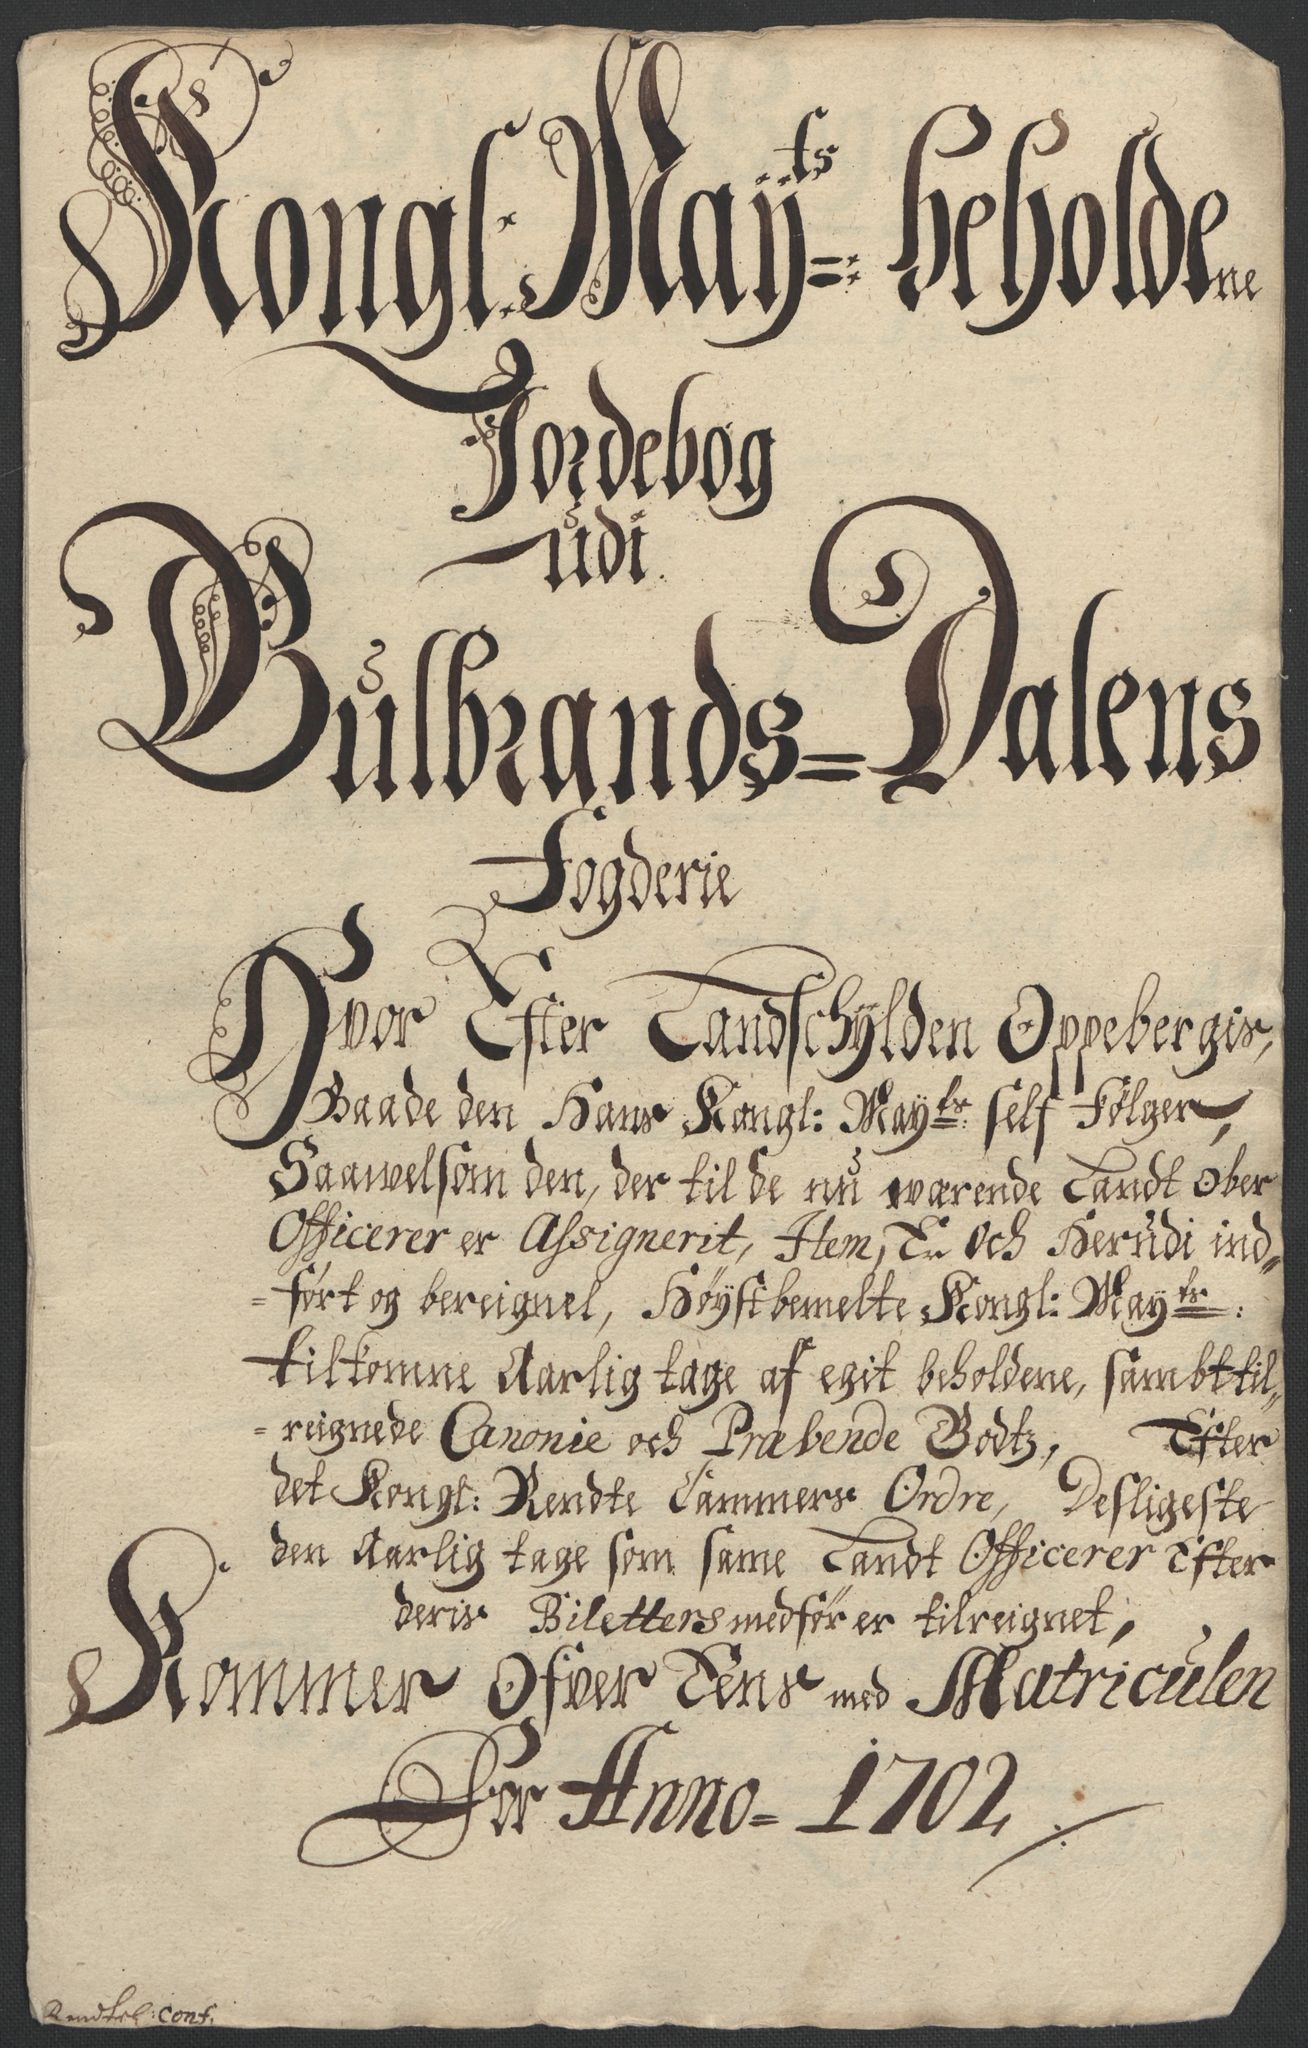 Kongl: Maÿts beholdene
Jordebog
udi
Gulbrands=Dalens
Fogderie
Hvor Efter Landschÿlden Oppebergis,
Baade den Hans Kongl: Mayts self Følger,
Saawelsom den, der til de nu wærende Landt Ober
Officerer er Assignerit, Item, En och Herudi ind„
=ført og bereignet, Høÿstbemelte Kongl: Mayts:
tilkomne Aarlig tage af egit beholdene, sambt til„
=reignede Canonie och Præbende Godtz, Efter
det Kongl: Rendte Cammers Ordre, Desligeste
den Aarlig tage som same Landt Officerer Efter
deris Biletters medfør er tilreignet,
Kommer Ofver Eens med Matriculen
For Anno= 1702
conf.